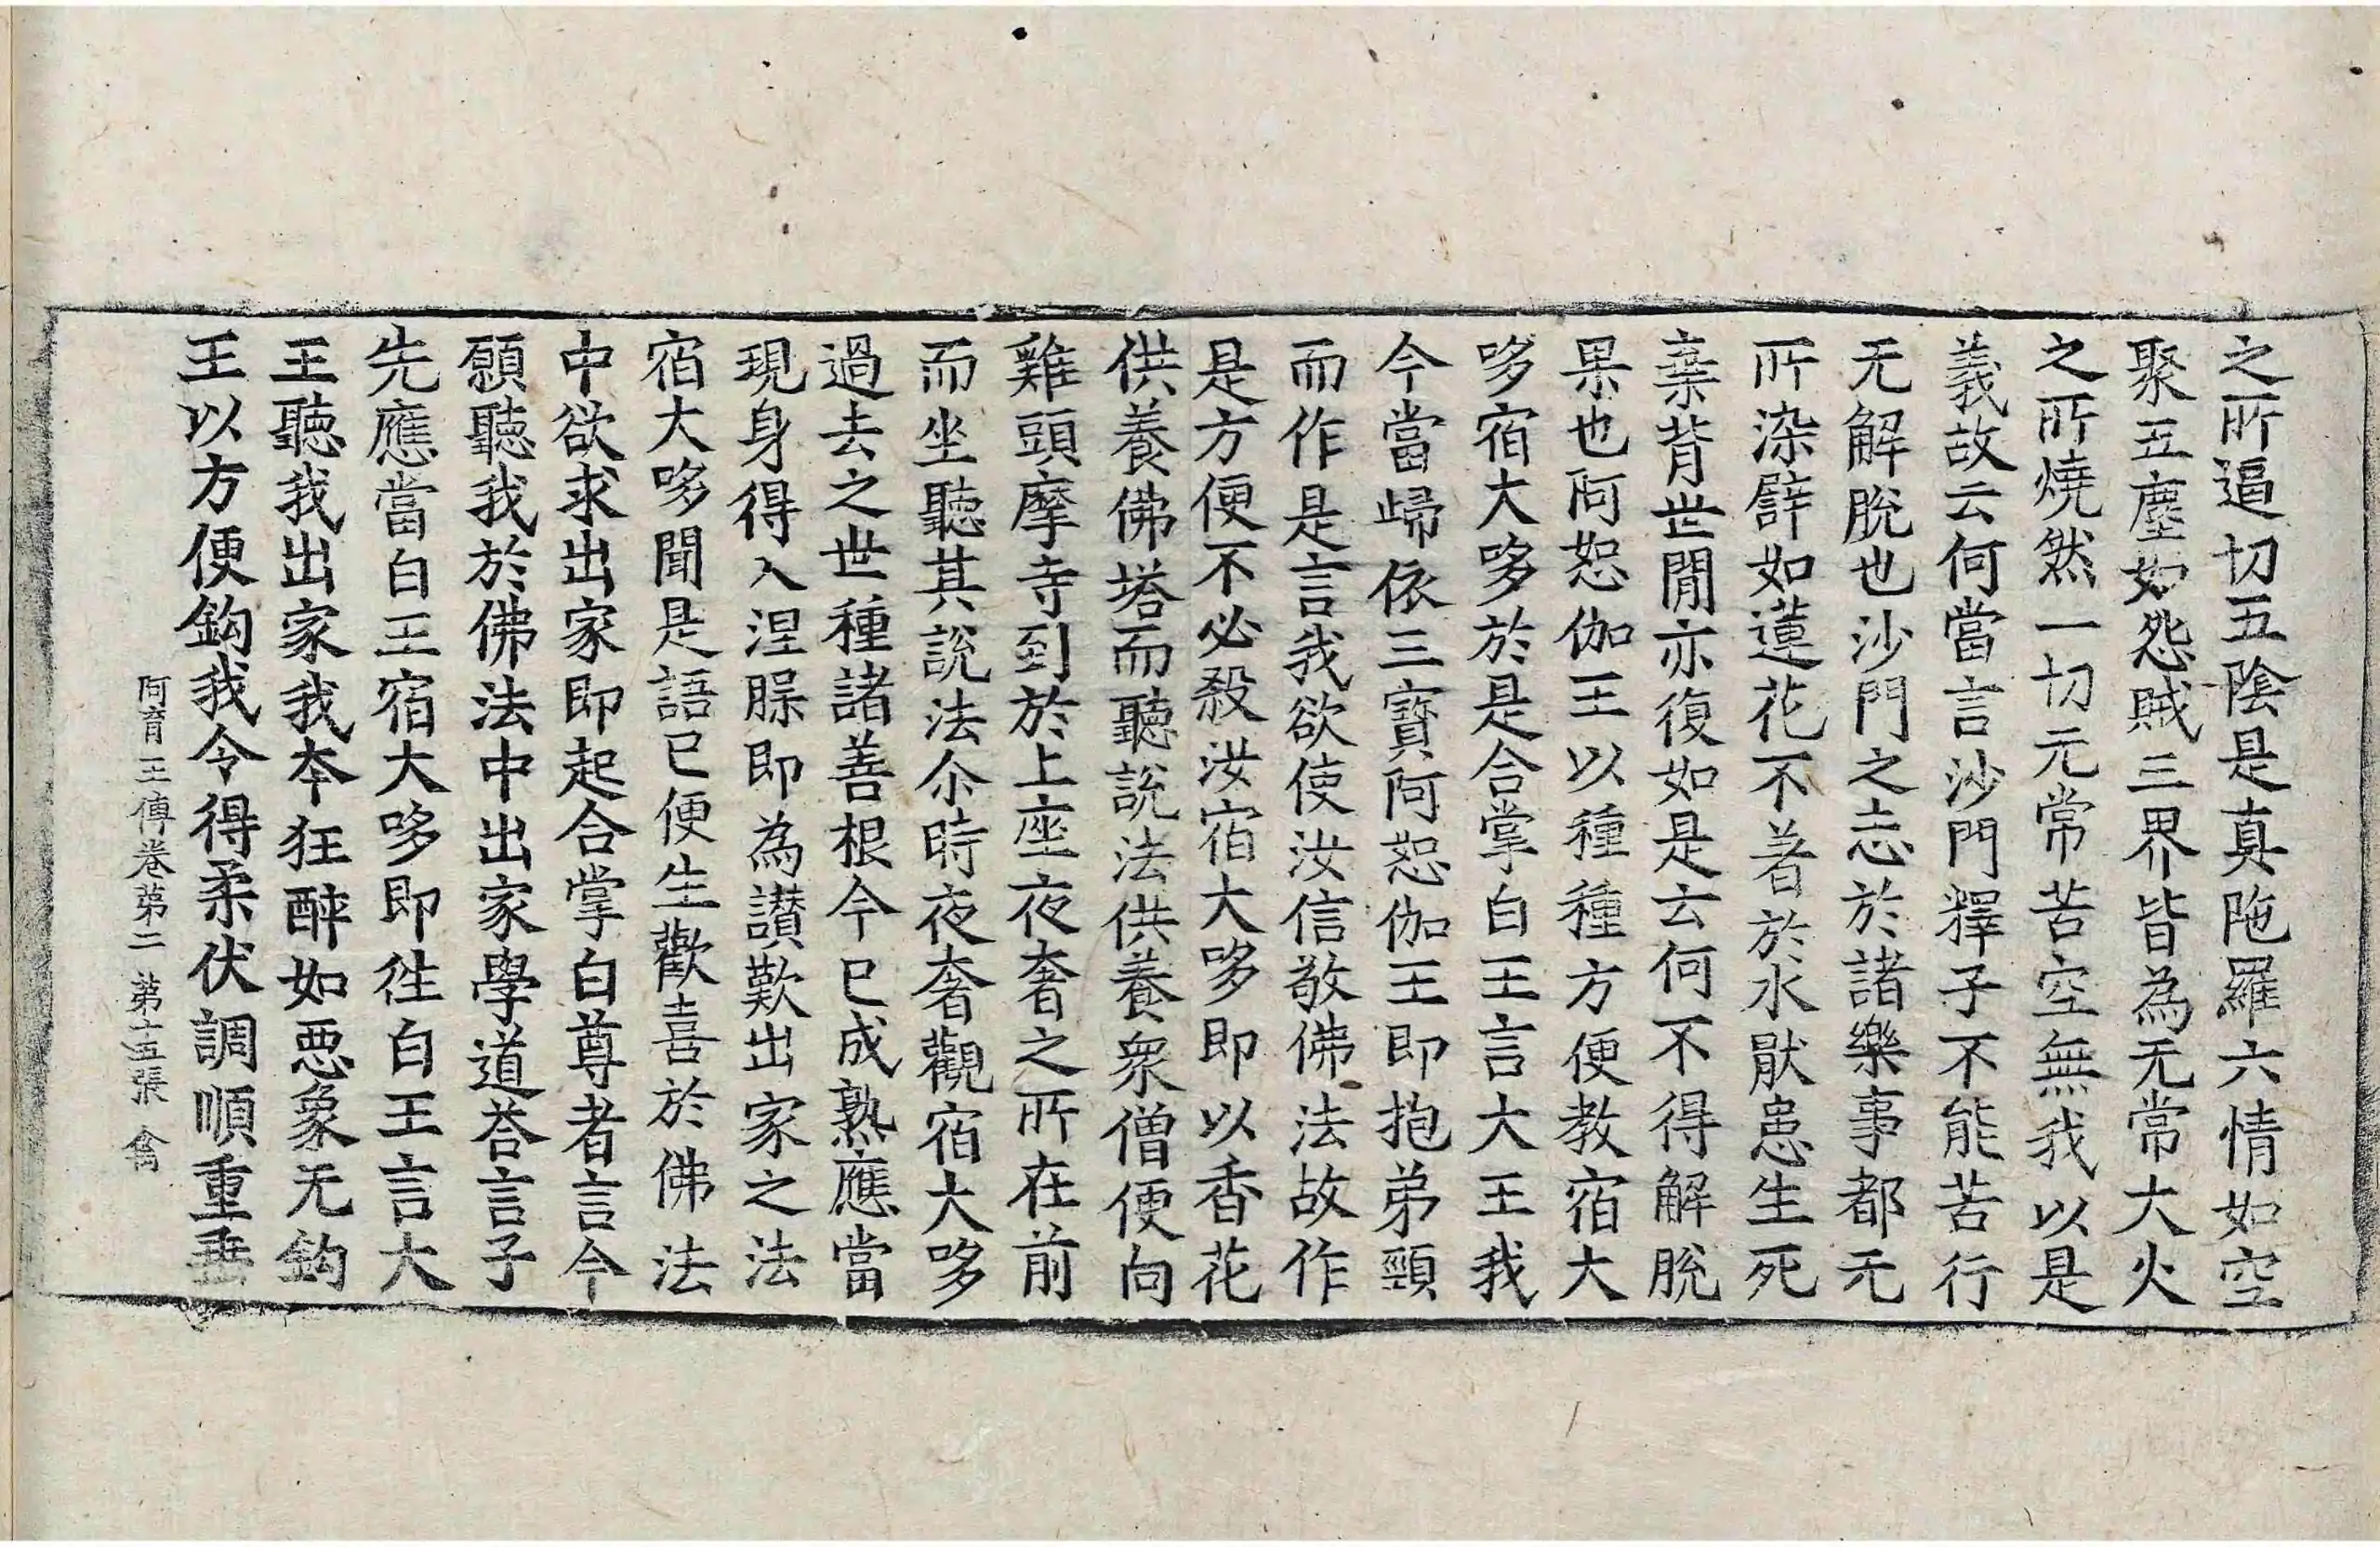 之所逼切五陰是真陁羅六情如空
聚五塵如怨賊三界皆為无常大火
之所燒然一切无常苦空無我以是
義故云何當言沙門釋子不能苦行
无解脫也沙門之志於諸樂事都无
所染譬如蓮花不著於水猒患生死
棄背世閒亦復如是云何不得解脫
果也阿恕伽王以種種方便教宿大
哆宿大哆於是合掌白王言大王我
今當歸依三寶阿恕伽王即抱弟頸
而作是言我欲使汝信敬佛法故作
是方便不必殺汝宿大哆即以香花
供養佛塔而聽說法供養衆僧便向
雞頭摩寺到於上座夜奢之所在前
而坐聽其說法尒時夜奢觀宿大哆
過去之世種諸善根今已成熟應當
現身得入涅脲即為讃歎出家之法
宿大哆聞是語已便生歡喜於佛法
中欲求出家即起合掌白尊者言今
願聽我於佛法中出家學道荅言子
先應當白王宿大哆即往白王言大
王聽我出家我本狂醉如惡象无鈎
王以方便鈎我令得柔伏調順重垂
阿育王傳卷第二 第十五張 禽